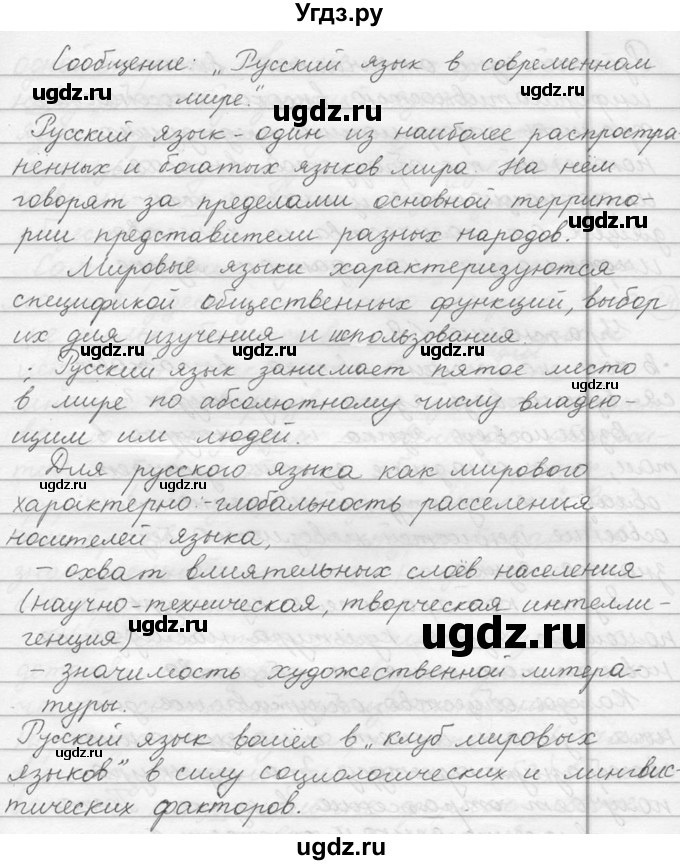 Угдз.ру
Сообщение: „Русский язык в современном
ugdz.ru ugdz.ru
мире."
ugdz.ru
Русский язык - один из наиболее распростра-
нённых и богатых языков мира. На нём
говорят за пределами основной террито-
ugdz.ru
рии представители разных народов.
ugdz.ru
Мировые языки характеризуются
спецификой общественных функций, выбор
их для изучения и использования
ugdz.ru ugdz.ru
: Русский язык занимает пятое место
ugdz.ru
в мире по абсолютному числу владею-
щим им людей.
Для русского языка как мирового
ugdz.ru ugdz.ru
характерно:-глобальность расселения
носителей языка,
- охват влиятельных слоёв населения
(научно-техническая, творческая интелли-
ugdz.ru ugdz.ru
генция)
- значимость художественной литера-
туры
Русский язык вошёл в „клуб мировых
ugdz.ru
языков" в силу социологических и лингвис-
ugdz.ru
тических факторов.
ugdz.ru